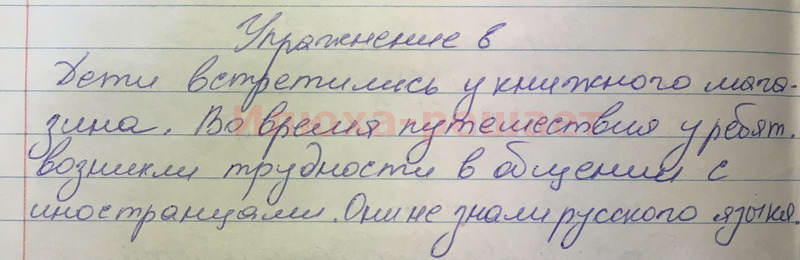 Упражнение 6
Дети встретились у книжного мага-
зина. Во время путешествия у ребят
возникли трудности в общении с
иностранцами. Они не знали русского языка.